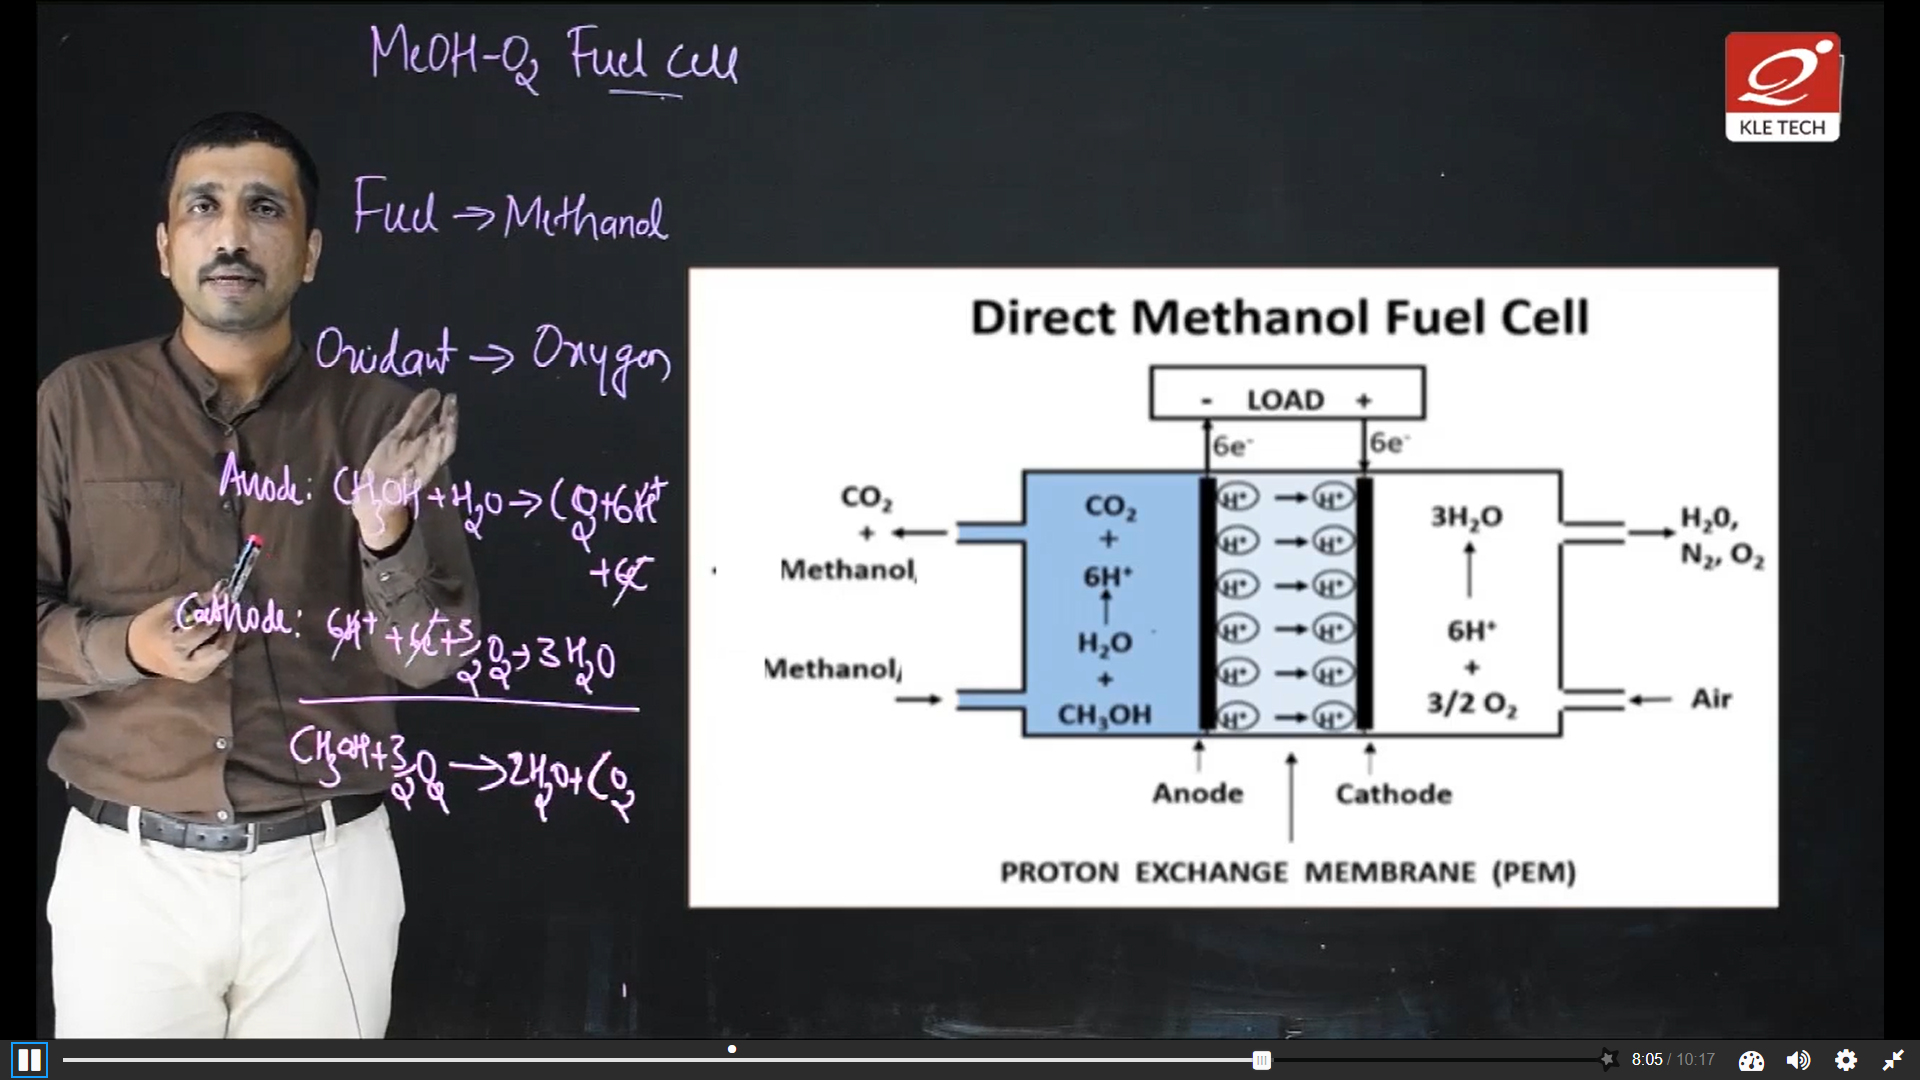 MeOH-O2 Fuel Cell
KLE TECH
Fuel → Methanol
Oxidant → Oxygen
Anode: CH3OH + H2O → CO2 + 6H+
+ 6e-
Cathode: 6H+ + 6e- + 3/2 O2 → 3H2O
CH3OH + 3/2 O2 → 2H2O + CO2
Direct Methanol Fuel Cell
- LOAD +
6e- 6e-
CO2
+
Methanol
Methanol
CO2
+
6H+
H2O
+
CH3OH
H+ → H+
H+ → H+
H+ → H+
H+ → H+
H+ → H+
H+ → H+
3H2O
6H+
+
3/2 O2
H20,
N2, O2
Air
Anode
Cathode
PROTON EXCHANGE MEMBRANE (PEM)
8:05 / 10:17